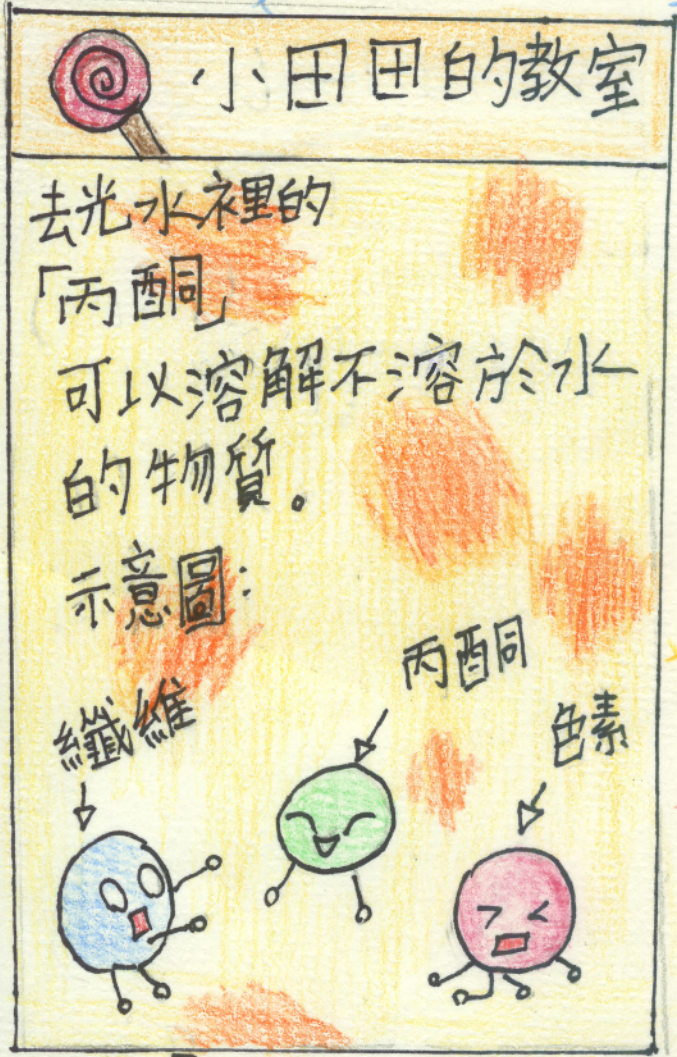 小田田的教室
去光水裡的
「丙酮」
可以溶解不溶於水
的物質。
示意圖：
丙酮
纖維
色素